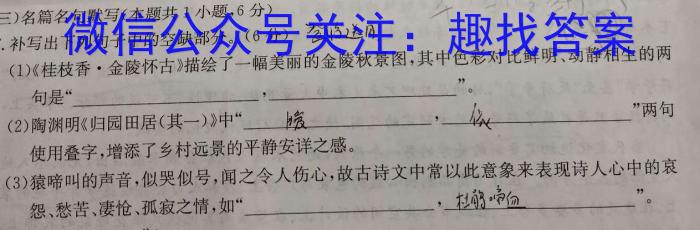 三)名篇名句默写(本题共1小题,6分)
.补写出下列句子中的空缺部分。(6分)
微信公众号关注：趣找答案
(1)《桂枝香·金陵怀古》描绘了一幅美丽的金陵秋景图,其中色彩对比鲜明、动静相生的两
句是“ , ”。
(2)陶渊明《归园田居(其一)》中“ 暧 , 依 ”两句
使用叠字,增添了乡村远景的平静安详之感。
(3)猿啼叫的声音,似哭似号,闻之令人伤心,故古诗文中常以此意象来表现诗人心中的哀
怨、愁苦、凄怆、孤寂之情,如“ , 杜鹃啼血 ”。